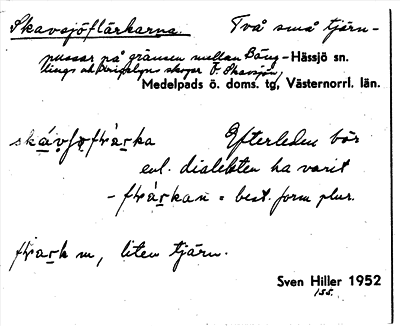 Skavsjöflärkarna. Två små tjärn-
pussar på gränsen mellan Bäng-Hässjö sn.
lings och skogar V. Skavsjön,
Medelpads ö. doms. tg, Västernorrl. län.
Efterleden bör
enl. dialekten ha varit
= best. form plur.
m, liten tjärn.
Sven Hiller 1952
155.